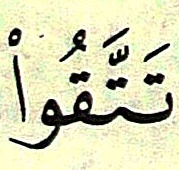 تَتَّقُواْ